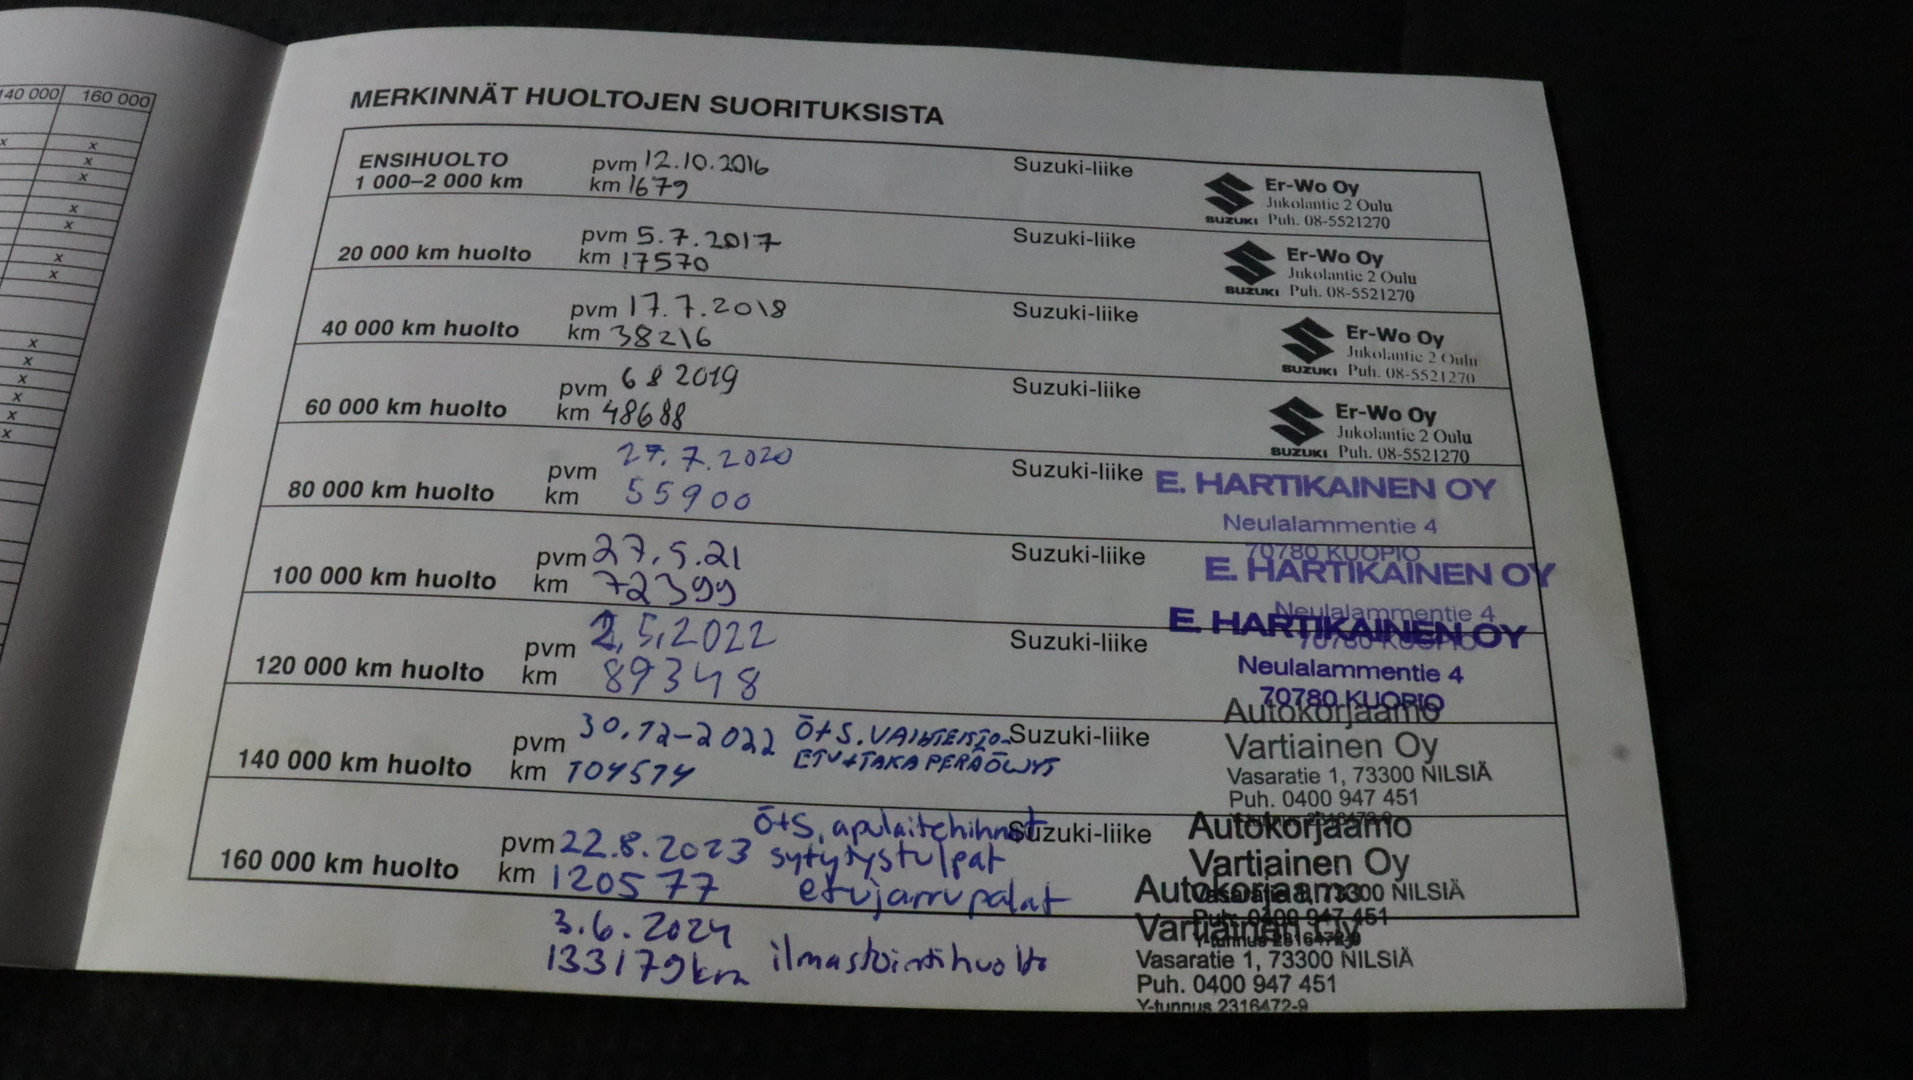 140 000 160 000
MERKINNÄT HUOLTOJEN SUORITUKSISTA
ENSIHUOLTO
1 000–2 000 km
pvm 12.10.2016
km 1679
Suzuki-liike
SUZUKI
Er-Wo Oy
Jukolantie 2 Oulu
Puh. 08-5521270
20 000 km huolto
pvm 5.7.2017
km 17570
Suzuki-liike
SUZUKI
Er-Wo Oy
Jukolantie 2 Oulu
Puh. 08-5521270
40 000 km huolto
pvm 17.7.2018
km 38216
Suzuki-liike
SUZUKI
Er-Wo Oy
Jukolantie 2 Oulu
Puh. 08-5521270
60 000 km huolto
pvm 6 8 2019
km 48688
Suzuki-liike
SUZUKI
Er-Wo Oy
Jukolantie 2 Oulu
Puh. 08-5521270
80 000 km huolto
pvm 27.7.2020
km 55900
Suzuki-liike
E. HARTIKAINEN OY
Neulalammentie 4
70780 KUOPIO
100 000 km huolto
pvm 27.5.21
km 72399
Suzuki-liike
E. HARTIKAINEN OY
Neulalammentie 4
70780 KUOPIO
120 000 km huolto
pvm 2.5.2022
km 89348
Suzuki-liike
E. HARTIKAINEN OY
Neulalammentie 4
70780 KUOPIO
140 000 km huolto
pvm 30.12-2022
km 104574
Ö+S. VAIHTEISTO
ETU+TAKA PERÄÖLJYT
Suzuki-liike
Autokorjaamo
Vartiainen Oy
Vasaratie 1, 73300 NILSIÄ
Puh. 0400 947 451
160 000 km huolto
pvm 22.8.2023
km 120577
Ö+S, apulaitehihnat
sytytystulpat
etujarrupalat
Suzuki-liike
Autokorjaamo
Vartiainen Oy
Vasaratie 1, 73300 NILSIÄ
Puh. 0400 947 451
Y-tunnus 2316472-9
3.6.2024
133179km
ilmastointihuolto
Autokorjaamo
Vartiainen Oy
Vasaratie 1, 73300 NILSIÄ
Puh. 0400 947 451
Y-tunnus 2316472-9